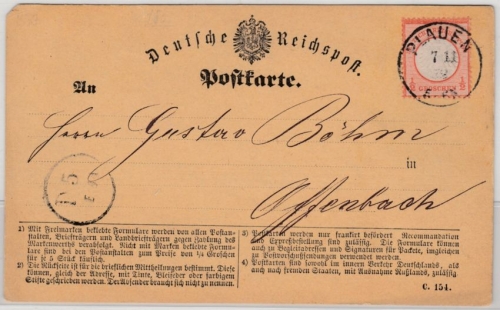 Deutsche Reichspost.
PLAUEN
7 11
Postkarte.
GROSCHEN
An
Herrn Gustav Böhm
in
Offenbach
1) Mit Freimarken beklebte Formulare werden von allen Postan-
stalten, Briefträgern und Landbriefträgern gegen Zahlung des
Markenwerths verabfolgt. Nicht mit Marken beklebte Formu-
lare sind bei den Postanstalten zum Preise von ¼ Groschen
für je 5 Stück käuflich.
2) Die Rückseite ist für die brieflichen Mittheilungen bestimmt. Diese
können, gleich der Adresse, mit Tinte, Bleifeder oder farbigem
Stifte geschrieben werden. Der Absender braucht sich nicht zu nennen.
3) Postkarten werden nur frankirt befördert. Recommandation
und Expreßbestellung sind zulässig. Die Formulare können
auch zu Begleitadressen und Signaturen für Packete, imgleichen
zu Postvorschußsendungen verwendet werden.
4) Postkarten sind sowohl im innern Verkehr Deutschlands, als
auch nach fremden Staaten, mit Ausnahme Rußlands, zulässig
C. 154.